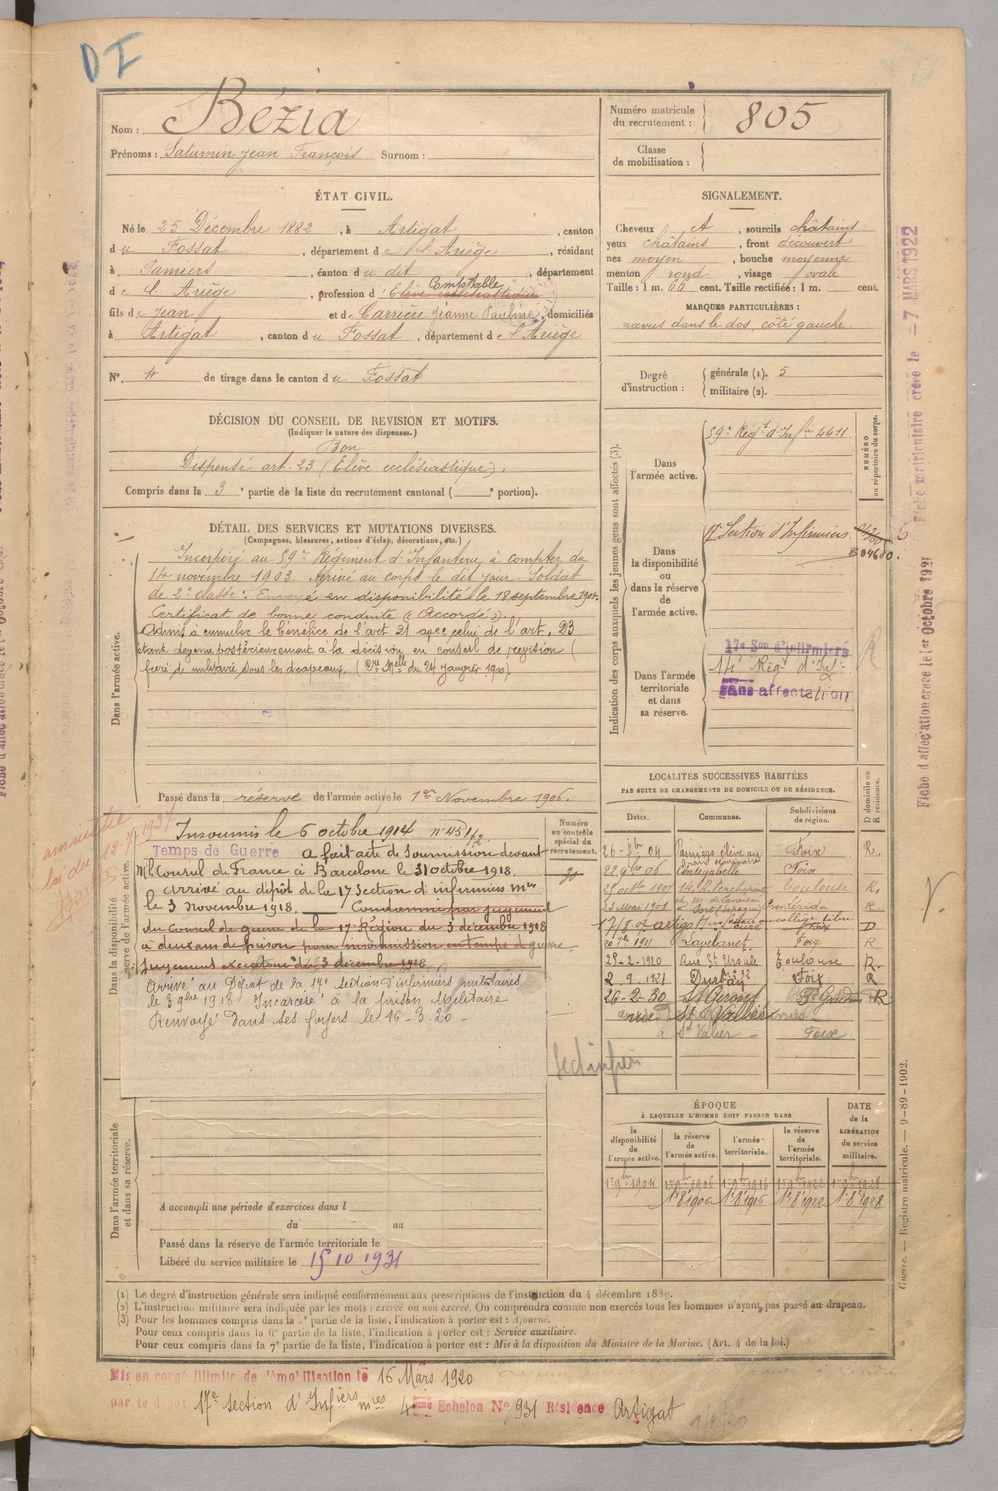 DI
Nom : Bézia
Prénoms : Saturnin Jean François Surnom :
Numéro matricule du recrutement : 805
Classe de mobilisation :
ÉTAT CIVIL.
Né le 25 Décembre 1882, à Artigat, canton
du Fossat, département de l'Ariège, résidant
à Pamiers, canton du dit, département
Comptable
de l'Ariège, profession d'Elève ecclésiastique
fils de Jean et de Carrière Jeanne Pauline, domiciliés
à Artigat, canton du Fossat, département de l'Ariège
N° 4 de tirage dans le canton du Fossat
SIGNALEMENT.
Cheveux et, sourcils châtains
yeux châtains, front découvert
nez moyen, bouche moyenne
menton rond, visage ovale
Taille : 1 m. 66 cent. Taille rectifiée : 1 m. cent.
MARQUES PARTICULIÈRES :
nævus dans le dos, côté gauche.
Degré d'instruction : générale (1). 5
militaire (2).
DÉCISION DU CONSEIL DE REVISION ET MOTIFS.
(Indiquer la nature des dispenses.)
Bon
Dispensé art. 23 (Elève ecclésiastique).
Compris dans la 3e partie de la liste du recrutement cantonal ( portion).
DÉTAIL DES SERVICES ET MUTATIONS DIVERSES.
(Campagnes, blessures, actions d'éclat, décorations, etc.)
Dans l'armée active.
Incorporé au 59e Régiment d'Infanterie à compter du
14 novembre 1903. Arrivé au corps le dit jour. Soldat
de 2e classe. Envoyé en disponibilité le 18 septembre 1904.
Certificat de bonne conduite "Accordé".
Admis à cumuler le bénéfice de l'art 21 avec celui de l'art. 23
étant devenu postérieurement à la décision du conseil de revision (
frère de militaire sous les drapeaux. (
Passé dans la réserve de l'armée active le 1er Novembre 1906.
Indication des corps auxquels les jeunes gens sont affectés (3).
NUMÉRO au répertoire du corps.
Dans l'armée active.
59e Régt d'Infie 4411
Dans la disponibilité ou dans la réserve de l'armée active.
17e Section d'Infirmiers
Dans l'armée territoriale et dans sa réserve.
17e Son d'infirmiers
14e Régt d'Inf.
Sans affectation
Dans la disponibilité ou dans la réserve de l'armée active.
Insoumis le 6 octobre 1914
Temps de Guerre A fait acte de soumission devant
Mr le Consul de France à Barcelone le 31 octobre 1918.
Arrivé au dépôt de la 17 section d'infirmiers mres
le 3 novembre 1918. Condamné par jugement
du conseil de guerre de la 17e Région du 3 décembre 1918
à deux ans de prison pour insoumission en temps de guerre
Jugement exécutoire du 3 décembre 1918.
Arrivé au Dépôt de la 17e section d'infirmiers militaires
le 3 9bre 1918. Incarcéré à la prison Militaire
Renvoyé dans ses foyers le 16-3-20
Numéro au contrôle spécial du recrutement.
LOCALITÉS SUCCESSIVES HABITÉES
PAR SUITE DE CHANGEMENTS DE DOMICILE OU DE RÉSIDENCE.
Dates. Communes. Subdivisions de region. D domicile ou R résidence.
Pamiers élève au grand séminaire Foix R.
22 9bre 06 Foix
Toulouse R.
Lérida R
D
1911 Lavelanet Foix R
25-2-1920 Rue Ste Ursule Toulouse R.
2.9.1921 Foix R
26-2-30 St Girons St Gaudens R
à St Valier Foix
ÉPOQUE
À LAQUELLE L'HOMME DOIT PASSER DANS
la disponibilité de l'armée active. la réserve de l'armée active. l'armée territoriale. la réserve de l'armée territoriale. DATE de la LIBÉRATION du service militaire.
1er 9bre 1904 1er 9bre 1906 1er 9bre 1916 1er 9bre 1922 1er 9bre 1928
Dans l'armée territoriale et dans sa réserve.
A accompli une période d'exercices dans l
du au
Passé dans la réserve de l'armée territoriale le
Libéré du service militaire le 15 10 1931
(1) Le degré d'instruction générale sera indiqué conformément aux prescriptions de l'instruction du 4 décembre 1889.
(2) L'instruction militaire sera indiquée par les mots : exercé ou non exercé. On comprendra comme non exercés tous les hommes n'ayant pas passé au drapeau.
(3) Pour les hommes compris dans la partie de la liste, l'indication à porter est : Ajourné.
Pour ceux compris dans la 6e partie de la liste, l'indication à porter est : Service auxiliaire.
Pour ceux compris dans la 7e partie de la liste, l'indication à porter est : Mis à la disposition du Ministre de la Marine. (Art. 4 de la loi.)
Mis en congé illimité de démobilisation le 16 Mars 1920
par le dépôt 17e section d'Infiers mres 4ème Echelon No 931 Résidence Artigat
Fiche matriculaire créée le -7 MARS 1922
Fiche d'affectation créée le 1er Octobre 1921
Guerre. — Registre matricule. — 9-89-1902.